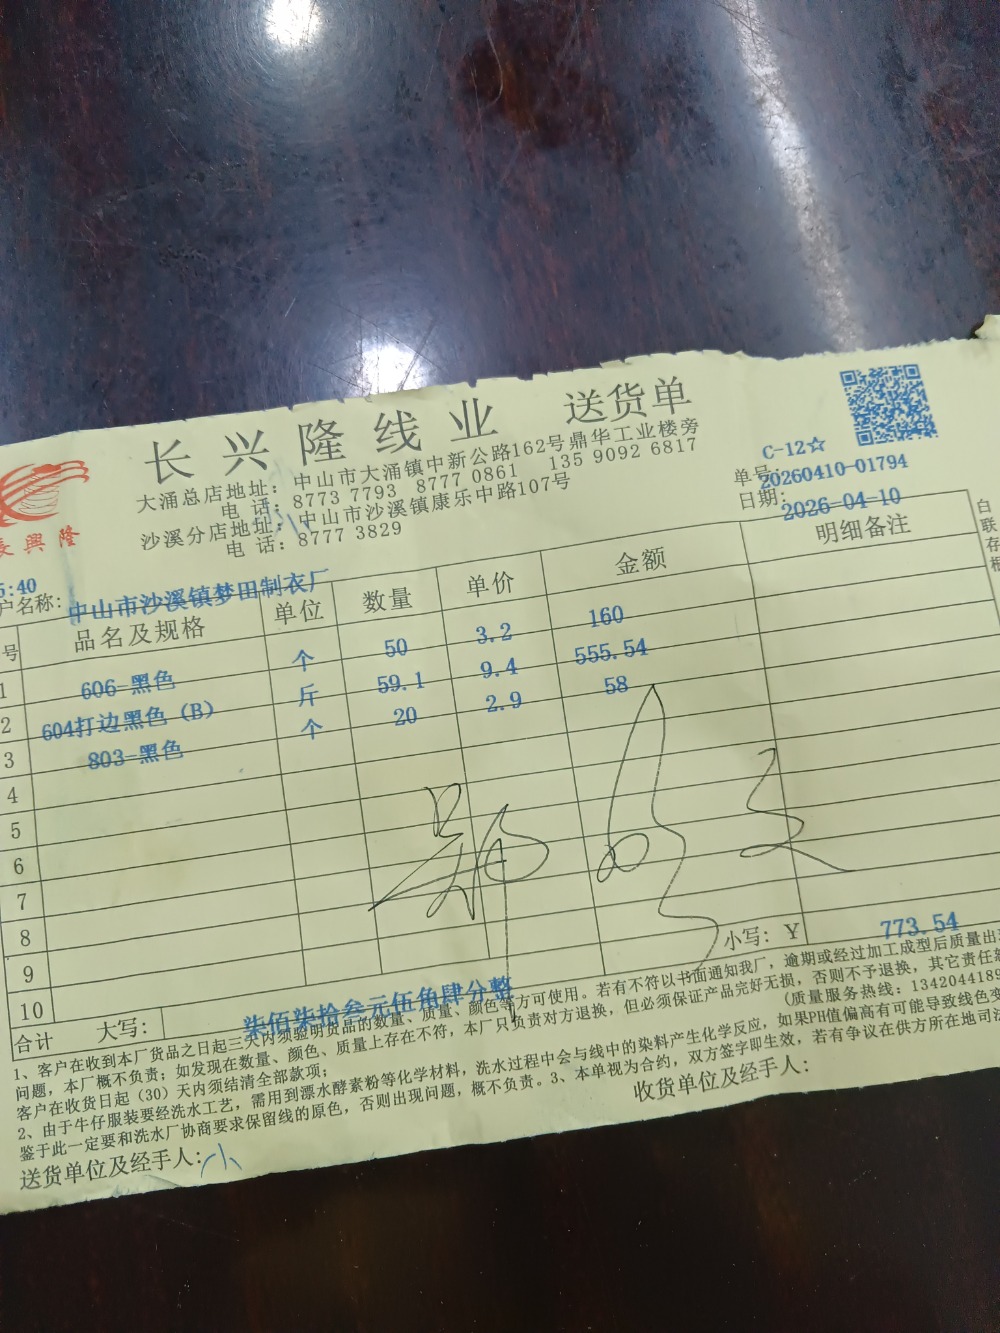 长兴隆线业 送货单
大涌总店地址：中山市大涌镇中新公路162号鼎华工业楼旁
电 话：8773 7793 8777 0861 135 9092 6817
沙溪分店地址：中山市沙溪镇康乐中路107号
电 话：8777 3829
C-12☆
单号：20260410-01794
日期：2026-04-10
長興隆
5:40
户名称：中山市沙溪镇梦田制衣厂
号 品名及规格 单位 数量 单价 金额 明细备注
1 606-黑色 个 50 3.2 160
2 604打边黑色（B） 斤 59.1 9.4 555.54
3 803-黑色 个 20 2.9 58
4
5
6
7
8
9
10
合计 大写：柒佰柒拾叁元伍角肆分整 小写：¥ 773.54
白联存根
1、客户在收到本厂货品之日起三天内须验明货品的数量、质量、颜色等方可使用。若有不符以书面通知我厂，逾期或经过加工成型后质量出
问题，本厂概不负责；如发现在数量、颜色、质量上存在不符，本厂只负责对方退换，但必须保证产品完好无损，否则不予退换，其它责任
客户在收货日起（30）天内须结清全部款项； （质量服务热线：1342044189
2、由于牛仔服装要经洗水工艺，需用到漂水酵素粉等化学材料，洗水过程中会与线中的染料产生化学反应，如果PH值偏高有可能导致线色变
鉴于此一定要和洗水厂协商要求保留线的原色，否则出现问题，概不负责。3、本单视为合约，双方签字即生效，若有争议在供方所在地司法
送货单位及经手人：小
收货单位及经手人：